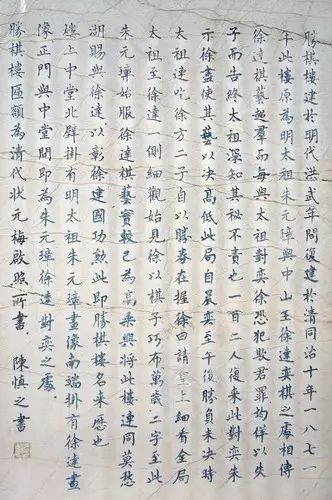 勝棋樓建於明洪武年間復建於清同治十年一八七一
年此樓原為明太祖朱元璋與中山王徐達弈棋之處相傳
徐達棋藝超群而每與太祖對弈徐恐犯欺君罪均佯以失
子而告終太祖深知其秘不責也一日二人復來此對弈朱
示徐盡使其藝以決高低此局自晨弈至午後勝負未決時
太祖連吃徐方二子自以勝券在握徐回請皇上細看全局
太祖至徐達一側細觀始見徐以棋子巧布萬歲二字至此
朱元璋始服徐達棋藝實較己為高乘興將此樓連同莫愁
湖賜與徐達以彰徐建國功勲此即勝棋樓名來歷也
樓上中堂北壁掛有明太祖朱元璋畫像南端掛有徐達畫
像正門與中堂間即為朱元璋徐達對弈之處
勝棋樓匾額為清代狀元梅啟照所書．陳慎之書